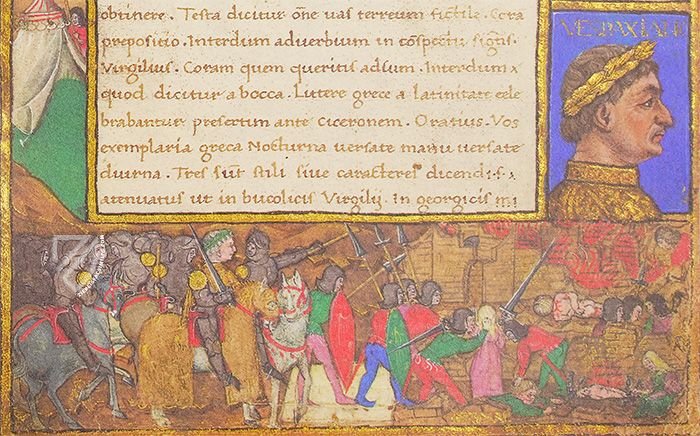 obtinere . Testa dicitur õne vas terreum fictile . Cora
prepositio . Interdum adverbium in cõspectu signis
Virgilius . Coram quem queritis adsum . Interdum x
quod dicitur a bocca . Littere grece a latinitate cele
brabantur presertim ante Ciceronem . Oratius . Vos
exemplaria greca Nocturna versate manu versate
diurna . Tres sūt stili sive caracteres dicendi . s .
atenuatus ut in bucolicis Virgilij . In georgicis mi